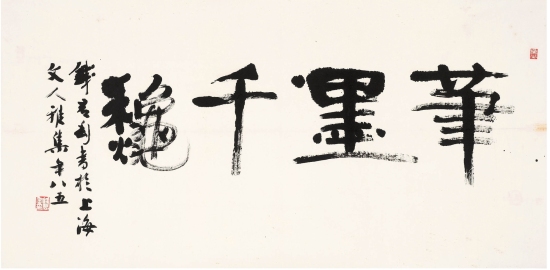 筆墨千龝
錢君匋書於上海
文人雅集年八五